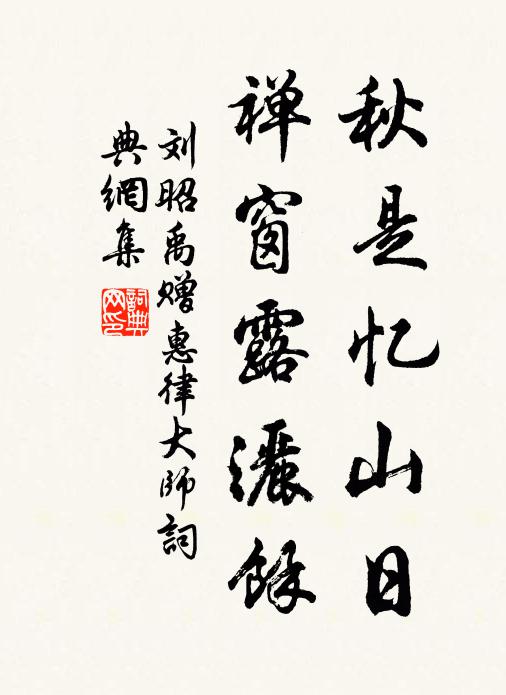 秋是忆山日
禅窗露灑餘
刘昭禹赠惠律大师詞
典網集
詞典网印